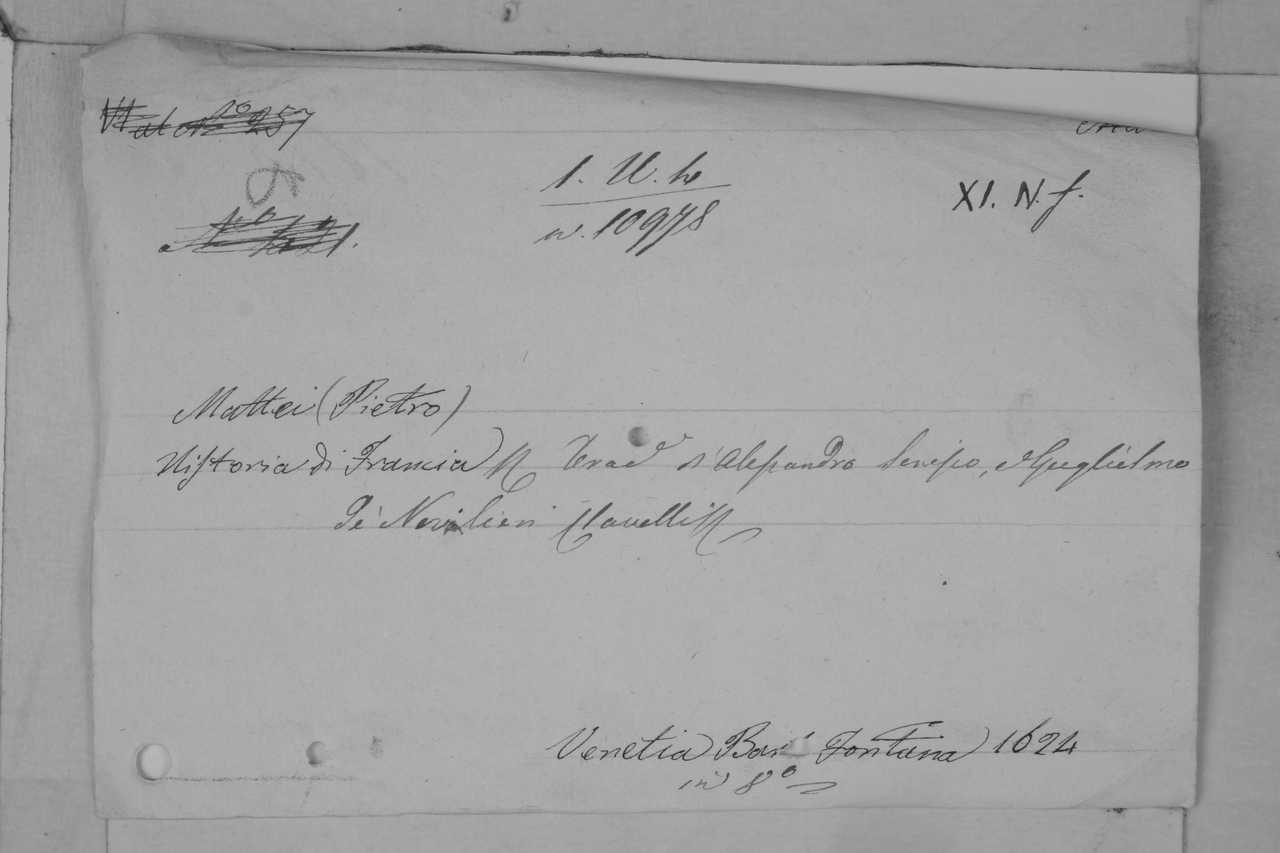 No 257
1. U. h
n. 10978
XI. N. f.
Mattei (Pietro)
Historia di Francia Trad d'Alessandro Senesio, e Guglielmo
de' Novilieri Clavelli
Venetia Bar. Fontana 1624
in 8º